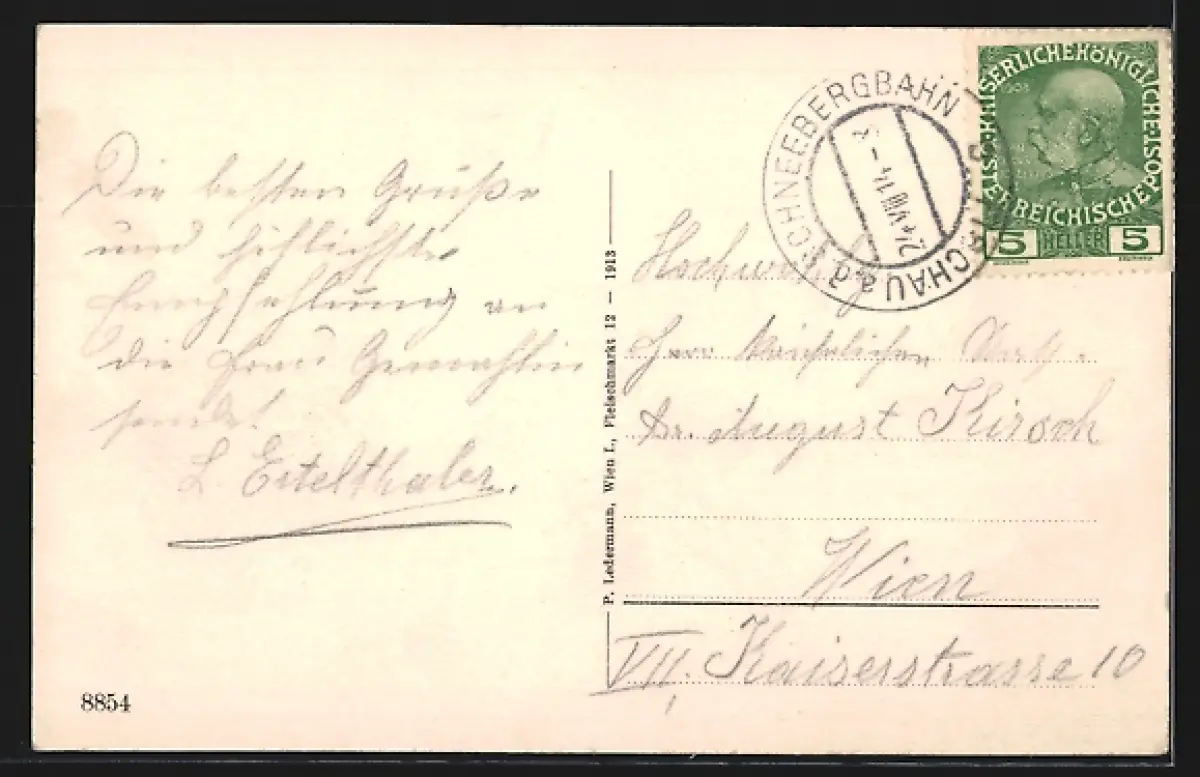 Die besten Grüße
und höflichste
Empfehlung an
die Frau Gemahlin
sendet
L. Eitelthaler.
8854
P. Ledermann, Wien I., Fleischmarkt 12 — 1913
PUCHBERG
SCHNEEBERGBAHN
24 VIII 14
KAISERLICHE KÖNIGLICHE
ÖSTERREICHISCHE POST
1908
5 HELLER 5
Hochwohlg.
Herr
Dr. August Kirsch
Wien
VII. Kaiserstrasse 10